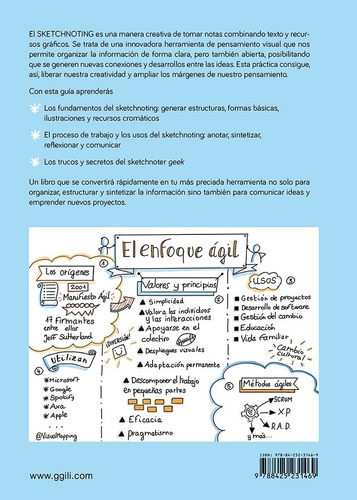 El SKETCHNOTING es una manera creativa de tomar notas combinando texto y recur-
sos gráficos. Se trata de una innovadora herramienta de pensamiento visual que nos
permite organizar la información de forma clara, pero también abierta, posibilitando
que se generen nuevas conexiones y desarrollos entre las ideas. Esta práctica consigue,
así, liberar nuestra creatividad y ampliar los márgenes de nuestro pensamiento.
Con esta guía aprenderás
Los fundamentos del sketchnoting: generar estructuras, formas básicas,
ilustraciones y recursos cromáticos
El proceso de trabajo y los usos del sketchnoting: anotar, sintetizar,
reflexionar y comunicar
Los trucos y secretos del sketchnoter geek
Un libro que se convertirá rápidamente en tu más preciada herramienta no solo para
organizar, estructurar y sintetizar la información sino también para comunicar ideas y
emprender nuevos proyectos.
El enfoque ágil
1
Los orígenes
2001
Manifiesto Ágil
17 Firmantes
entre ellos
Jeff Sutherland
4
Utilizan
* Microsoft
* Google
* Spotify
* Axa
* Apple
...
@VisualMapping
2
Valores y principios
Simplicidad
Valora los individuos
y las interacciones
Apoyarse en el
colectivo
¡DIVERSIÓN!
Despliegues visuales
Adaptación permanente
Descomponer el trabajo
en pequeñas partes
Eficacia
Pragmatismo
USOS
3
Gestión de proyectos
Desarrollo de software
Gestión del cambio
Educación
Vida familiar
Cambio
cultural
5
Métodos ágiles
SCRUM
X.P.
R.A.D.
y más...
www.ggili.com
ISBN: 978-84-252-3146-9
9 788425 231469